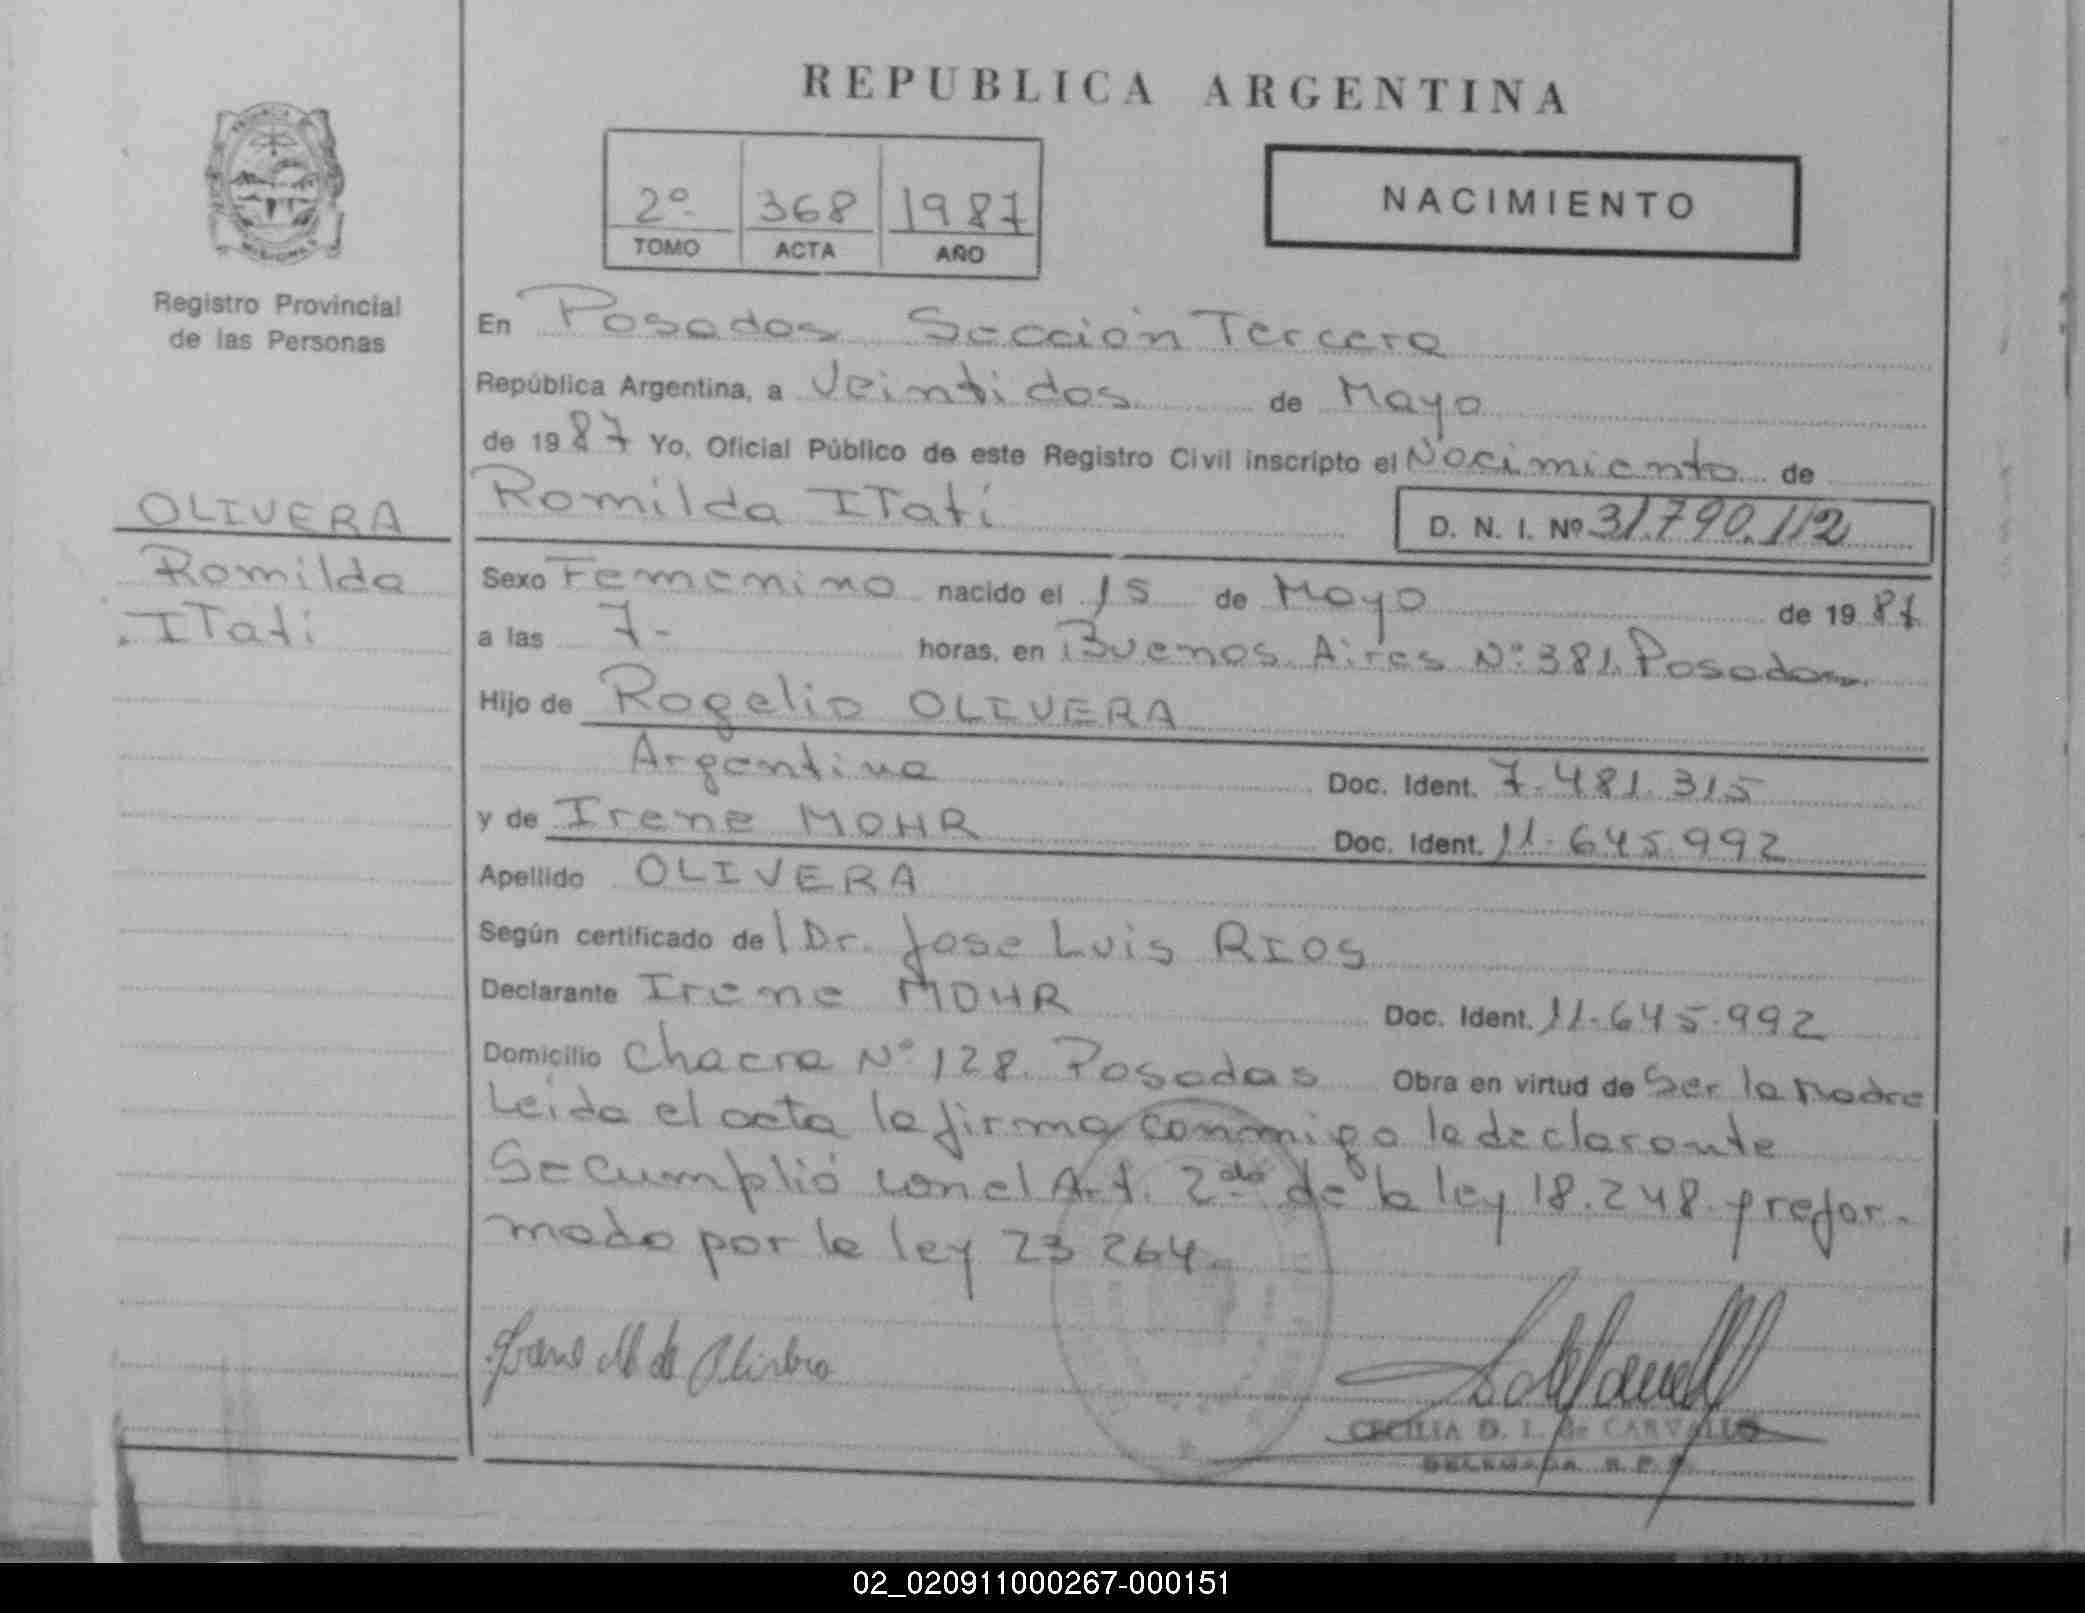 REPUBLICA ARGENTINA
2º 368 1987
TOMO ACTA AÑO
NACIMIENTO
Registro Provincial
de las Personas
OLIVERA
Romilda
ITatí
En Posadas Sección Tercera
República Argentina, a Veintidos de Mayo
de 1987 Yo, Oficial Público de este Registro Civil inscripto el Nacimiento de
Romilda ITatí D. N. I. Nº 31.790.112
Sexo Femenino nacido el 15 de Mayo de 1987
a las 7- horas, en Buenos Aires Nº 381 Posadas
Hijo de Rogelio OLIVERA
Argentino Doc. Ident. 7.481.315
y de Irene MOHR Doc. Ident. 11.645.992
Apellido OLIVERA
Según certificado del Dr. Jose Luis RIOS
Declarante Irene MOHR Doc. Ident. 11.645.992
Domicilio Chacra Nº 128 Posadas Obra en virtud de Ser la Madre
Leida el acta la firma conmigo la declarante
Se cumplió con el Art. 2do de la ley 18.248 y refor-
mada por la ley 23264-
Irene M de Olivera
CECILIA D. I. de CARVALLO
DELEGADA R. P. P.
02_020911000267-000151